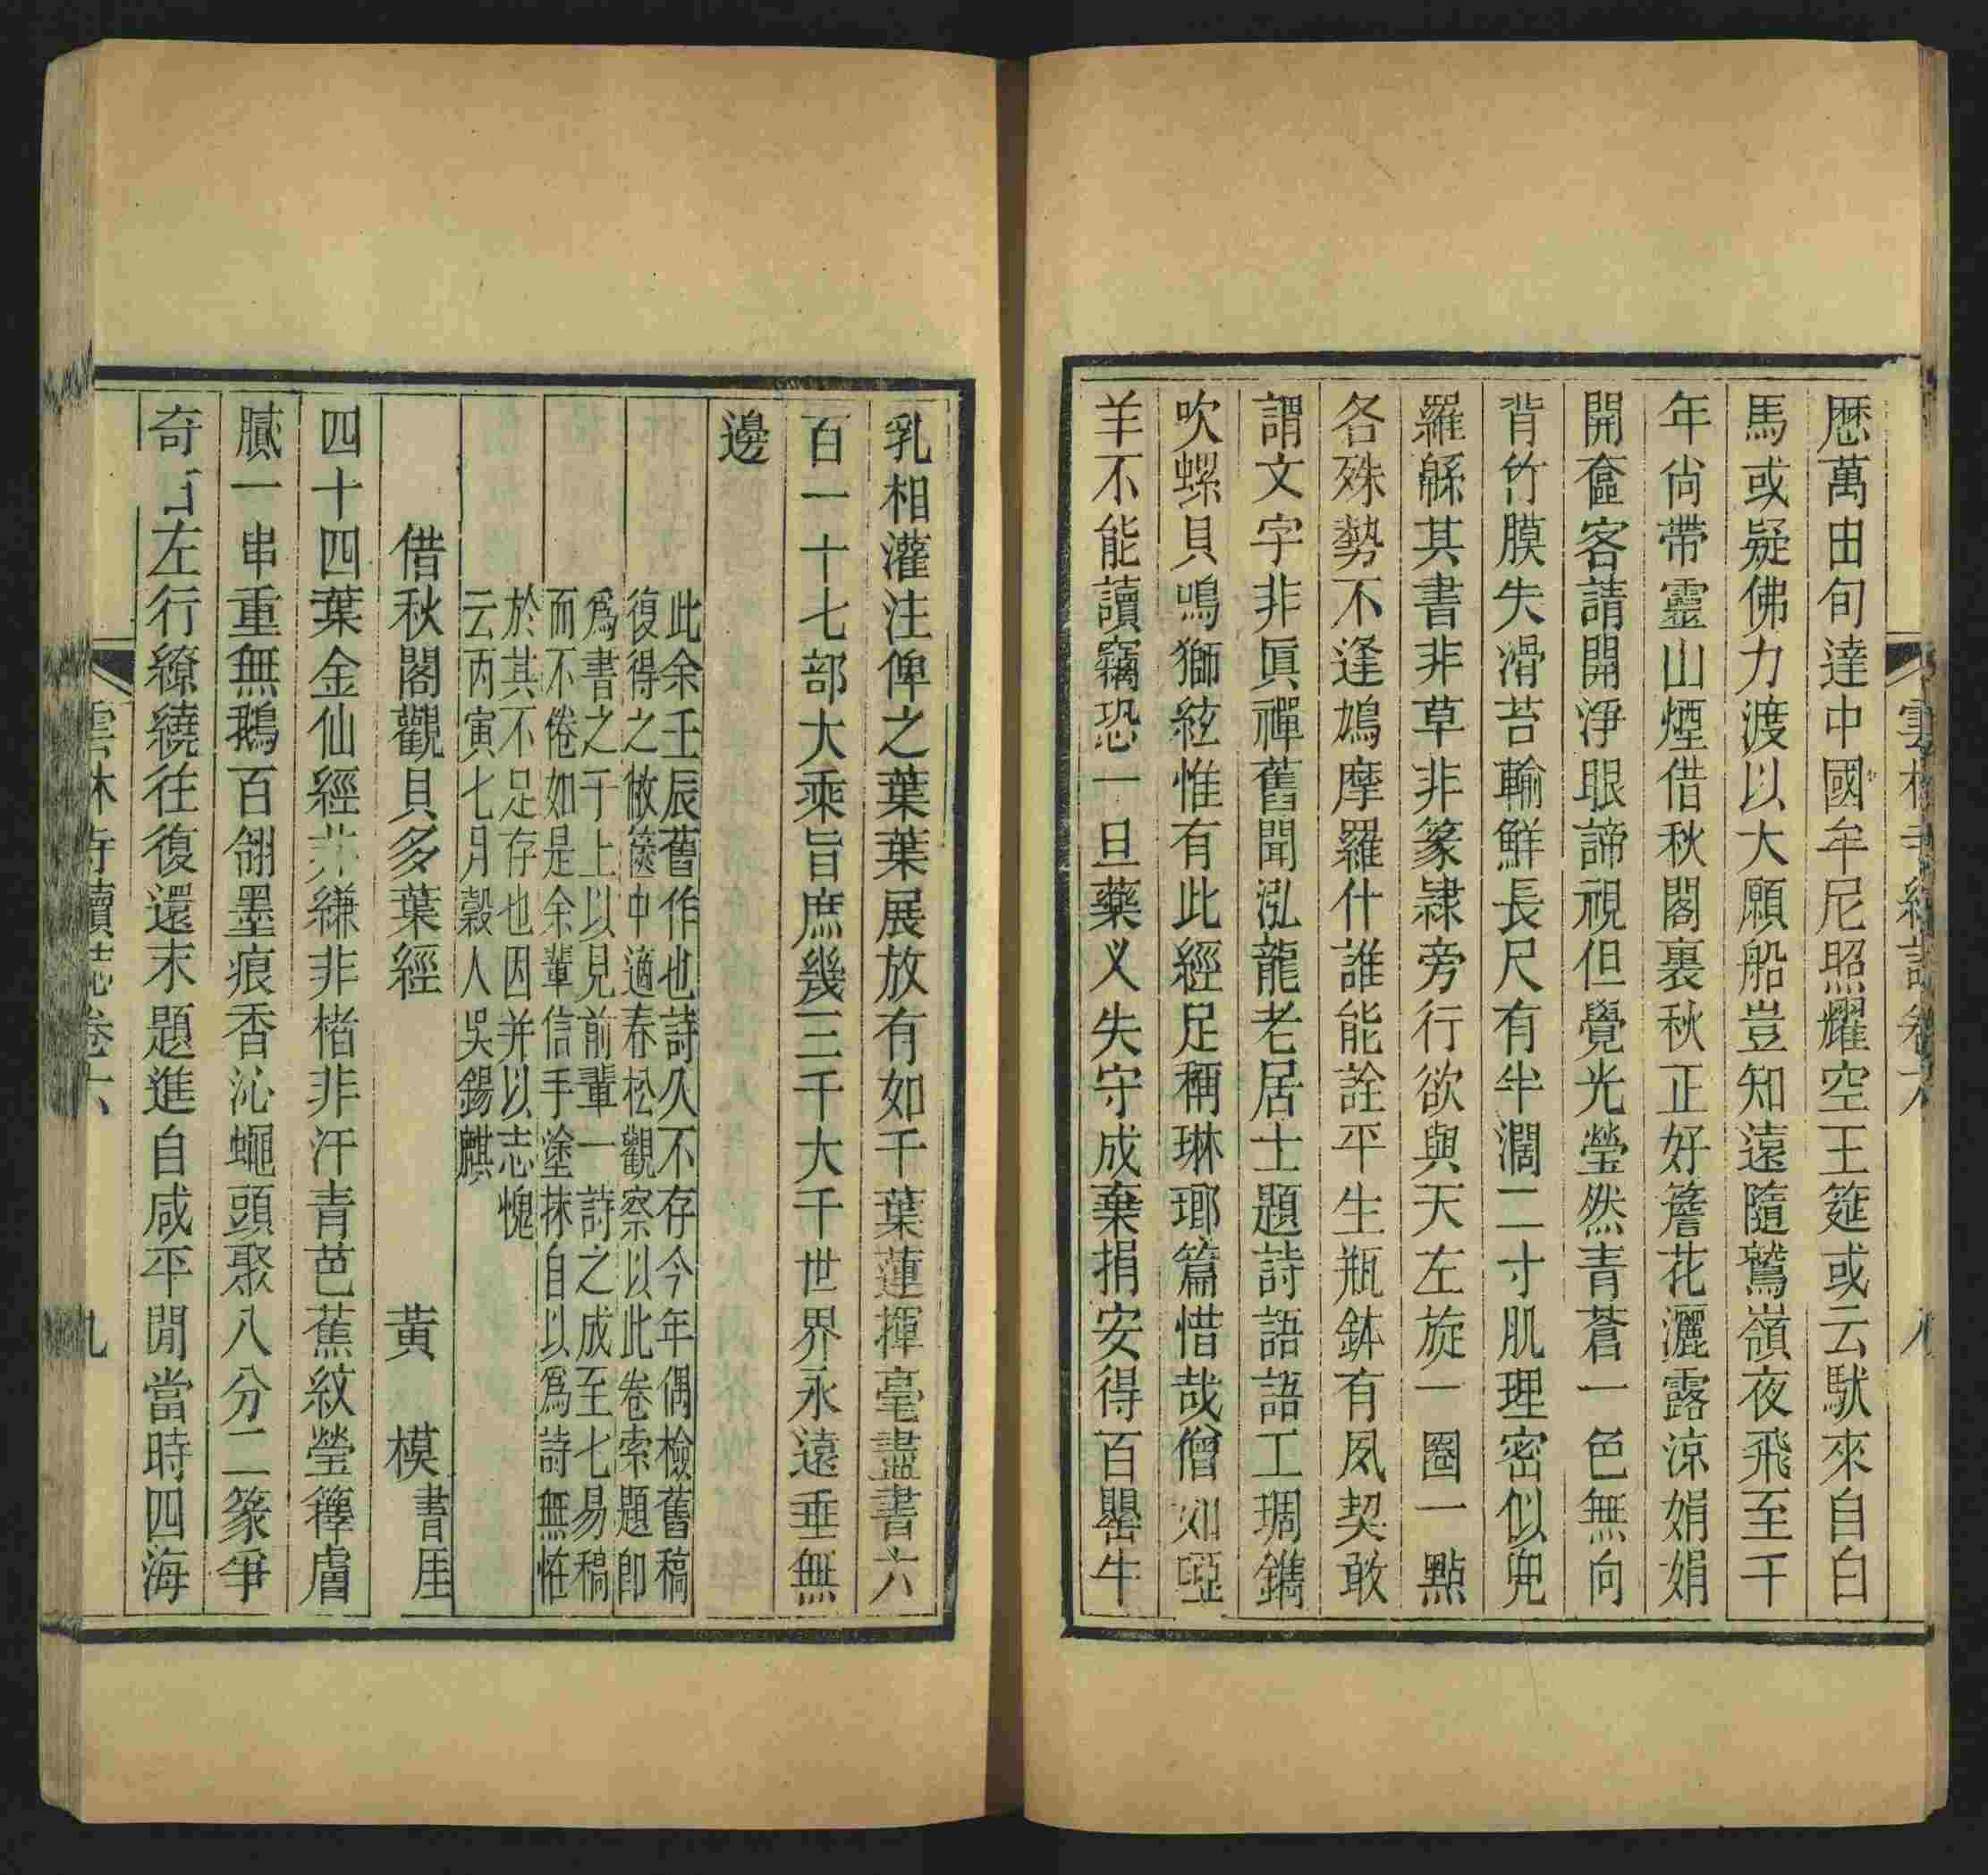 歷萬由旬達中國牟尼照耀空王筵或云馱來自白
馬或疑佛力渡以大願船豈知遠隨鷲嶺夜飛至千
年尙帶靈山煙借秋閣裏秋正好簷花灑露涼娟娟
開奩客請開淨眼諦視但覺光瑩然青蒼一色無向
背竹膜失滑苔輸鮮長尺有半濶二寸肌理密似兜
羅緜其書非草非篆隷旁行欲與天左旋一圈一點
各殊勢不逢鳩摩羅什誰能詮平生瓶鉢有夙契敢
謂文字非眞禪舊聞泓龍老居士題詩語語工琱鐫
吹螺貝鳴獅絃惟有此經足稱琳瑯篇惜哉僧如啞
羊不能讀竊恐一旦藥义失守成棄捐安得百罌牛
乳相灌注俾之葉葉展放有如千葉蓮揮毫盡書六
百一十七部大乘旨庶幾三千大千世界永遠垂無
邊
此余壬辰舊作也詩久不存今年偶檢舊稿
復得之敝篋中適春松觀察以此卷索題卽
爲書之于上以見前輩一詩之成至七易稿
而不倦如是余輩信手塗抹自以爲詩無怪
於其不足存也因并以志愧
云丙寅七月穀人吳錫麒
借秋閣觀貝多葉經　黃模書厓
四十四葉金仙經非縑非楮非汗青芭蕉紋瑩籜膚
膩一串重無鵝百翎墨痕香沁蠅頭聚八分二篆爭
奇古左行繚繞往復還末題進自咸平閒當時四海
雲林寺續誌卷六
九